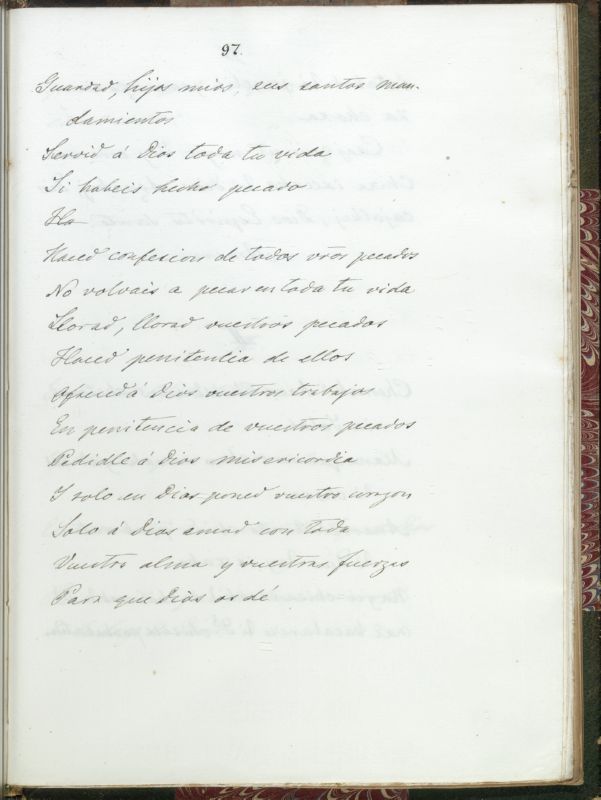 97.
Guardad, hijos mios, sus santos man-
damientos
Servid á Dios toda tu vida
Si habeis hecho pecado
Ha
Haced confesion de todos vros pecados
No volvais a pecar en toda tu vida
Llorad, llorad vuestros pecados
Haced penitencia de ellos
Ofreced a Dios vuestros trabajos
En penitencia de vuestros pecados
Pedidle á Dios misericordia
I solo en Dios poned vuestro corazon
Solo á Dios amad con toda
Vuestra alma y vuestras fuerzas
Para que Dios os dé